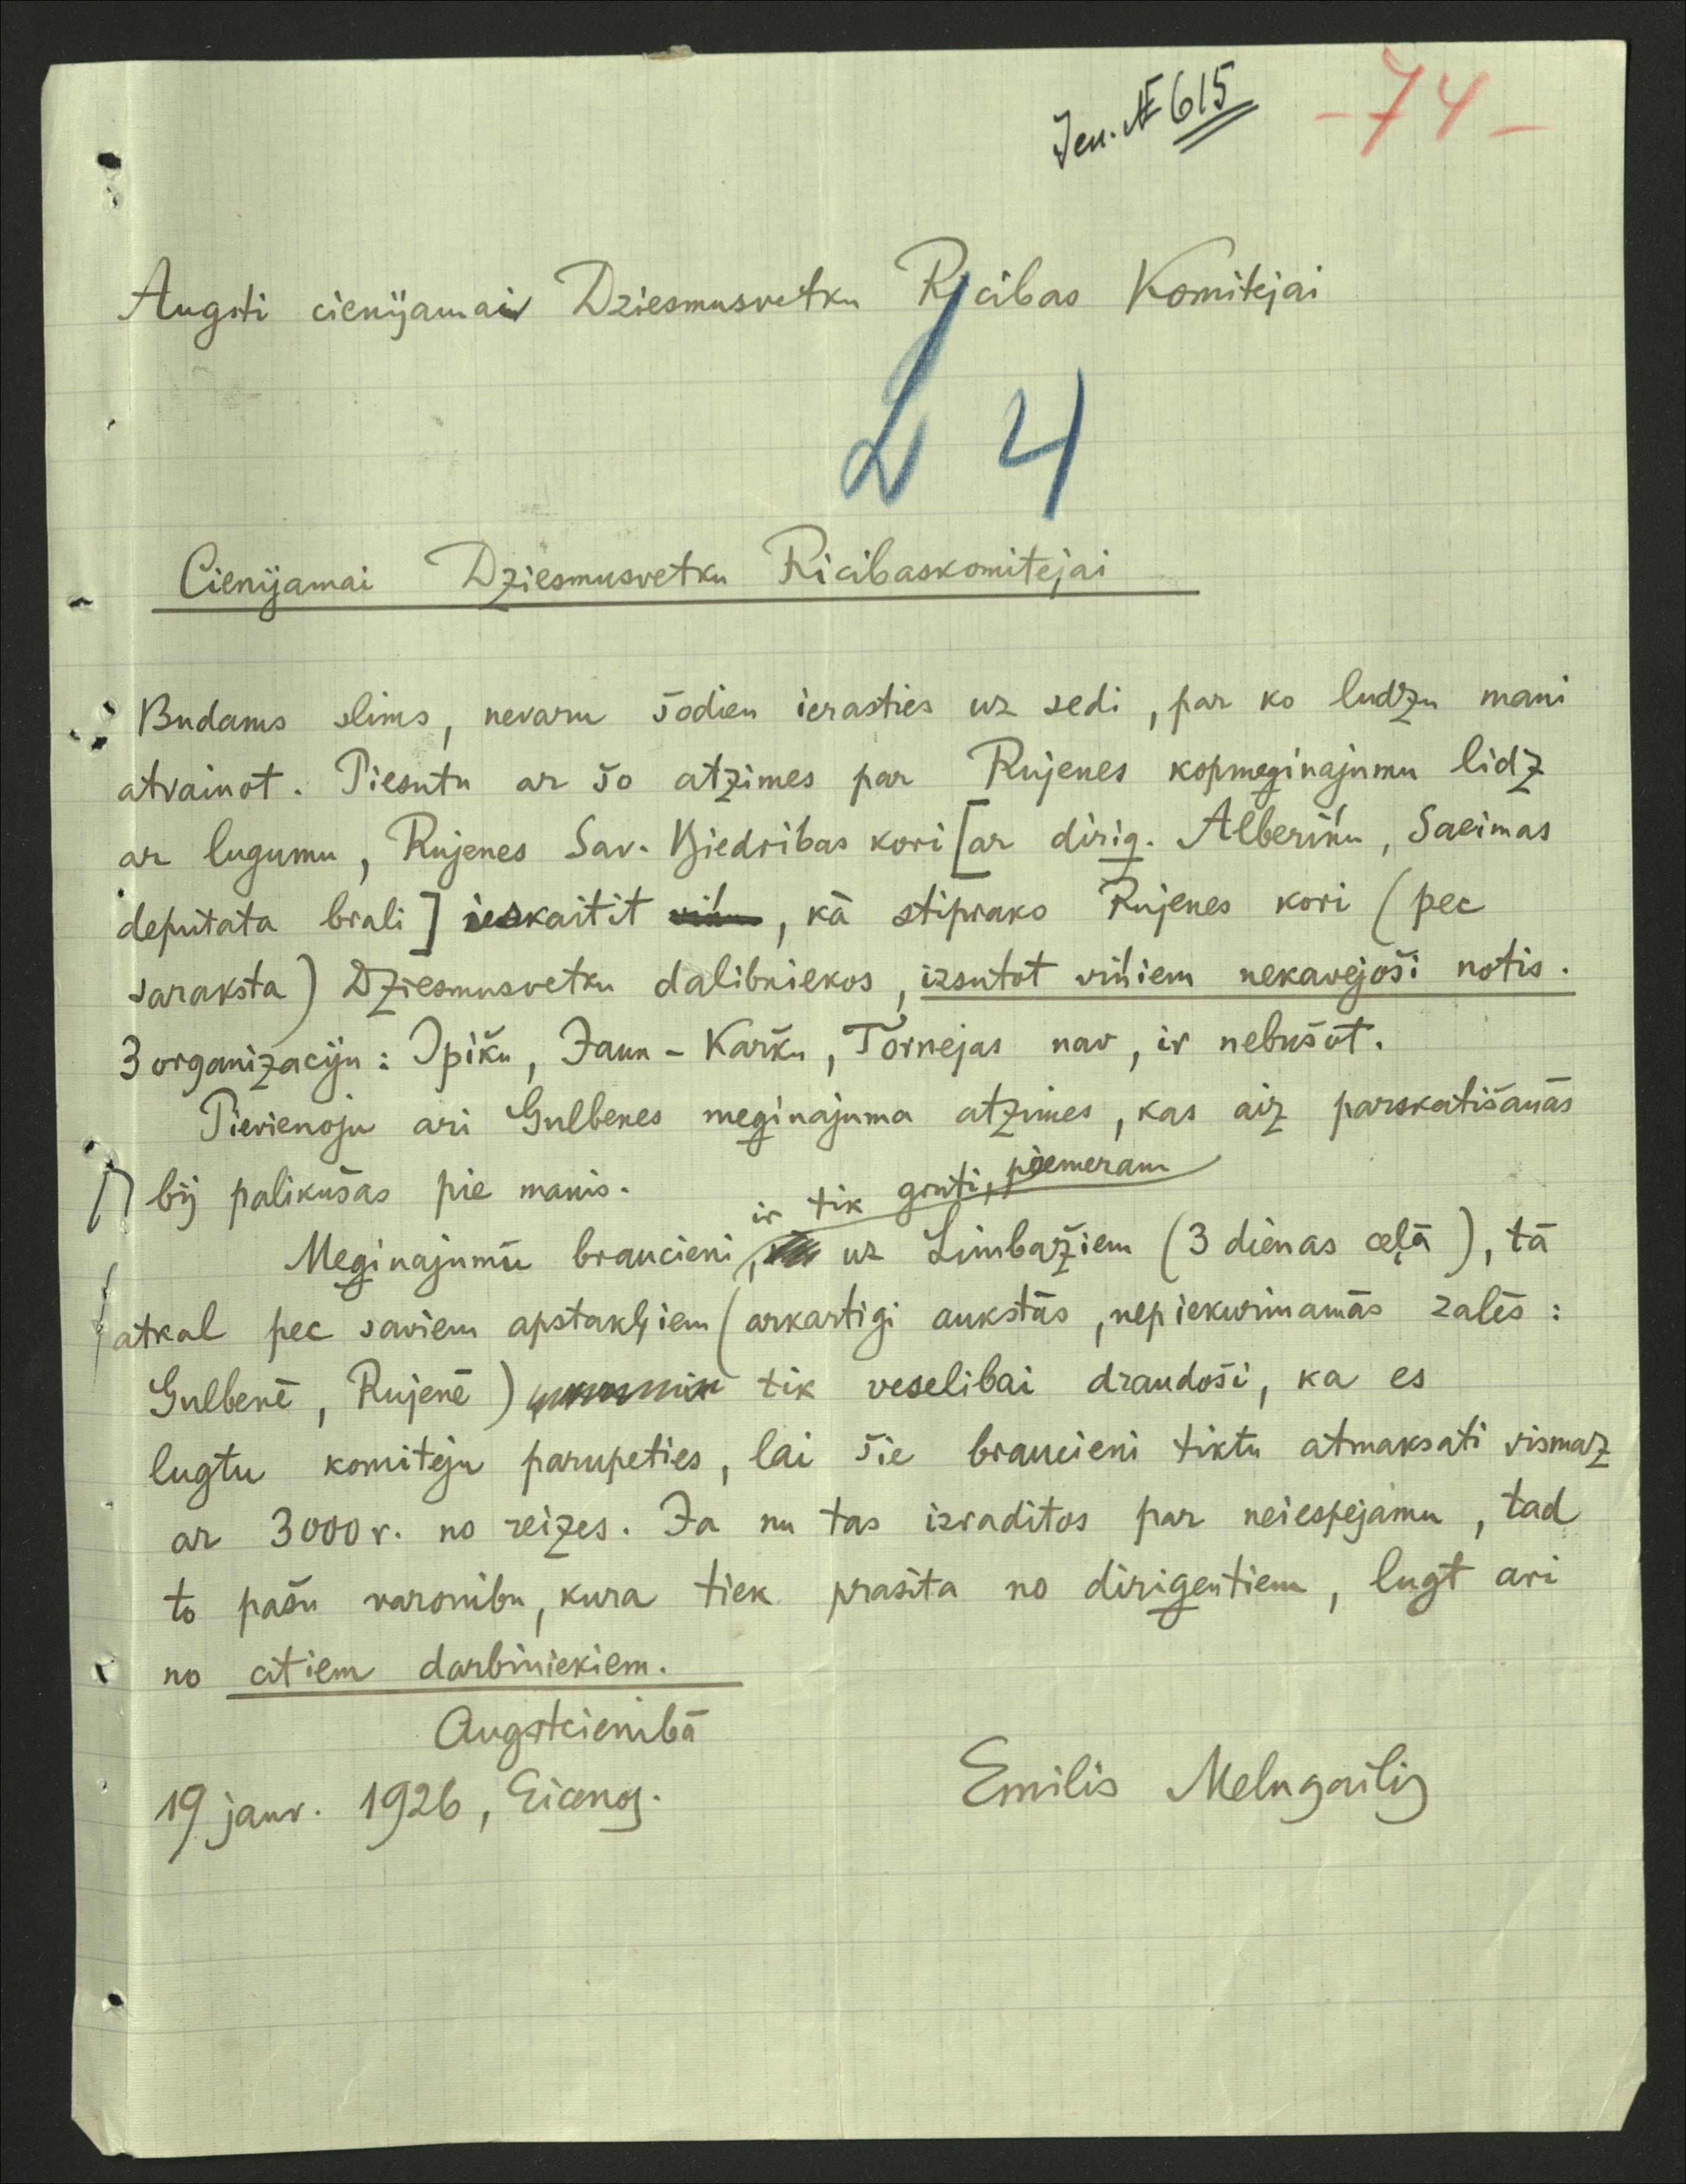 Ien. № 615
- 74 -
Augsti cienijamai Dziesmusvetku Ricibas Komitejai
L 4
Cienijamai Dziesmusvetku Ricibaskomitejai
Budams slims, nevaru šodien ierasties uz sedi, par ko ludzu mani
atvainot. Piesutu ar šo atzimes par Rujenes kopmeginajumu lidz
ar lugumu, Rujenes Sav. Biedribas kori [ar dirig. Alberiņu, Saeimas
deputata brali] ieskaitit, kā stiprako Rujenes kori (pec
saraksta) Dziesmusvetku dalibniekos, izsutot viņiem nekavejoši notis.
3 organizaciju: Ipiķu, Jaun-Karķu, Tornejas nav, ir nebušot.
Pievienoju ari Gulbenes meginajuma atzimes, kas aiz parskatišanās
bij palikušas pie manis.
ir tik gruti, piemeram
Meginajumu braucieni, uz Limbažiem (3 dienas ceļā), tā
atkal pec saviem apstakļiem (arkartigi aukstās, nepiekurinamās zalēs:
Gulbenē, Rujenē) tik veselibai draudoši, ka es
lugtu komiteju parupeties, lai šie braucieni tiktu atmaksati vismaz
ar 3000 r. no reizes. Ja nu tas izraditos par neiespejamu, tad
to pašu varonibu, kura tiek prasita no dirigentiem, lugt ari
no citiem darbiniekiem.
Augstcienibā
19 janv. 1926,
Emilis Melngailis